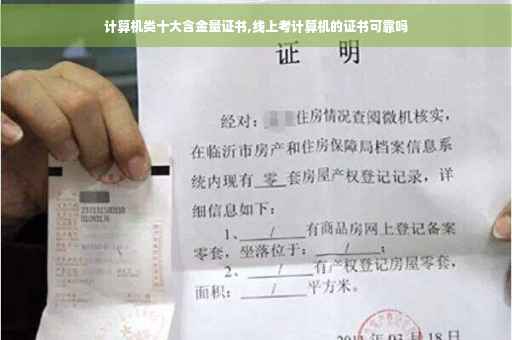 计算机类十大含金量证书,线上考计算机的证书可靠吗
证 明
经对: 住房情况查阅微机核实,
在临沂市房产和住房保障局档案信息系
统内现有 零 套房屋产权登记记录，详
细信息如下:
1、 / 有商品房网上登记备案
零套，坐落位于: / ;
2、 / 有产权登记房屋零套，
面积: / 平方米。
年 03 月 18 日